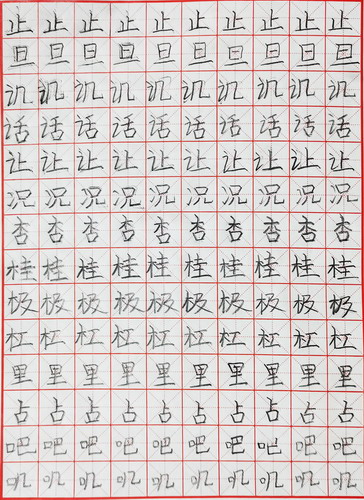 止止止止止止止止止止
旦旦旦旦旦旦旦旦旦旦
讥讥讥讥讥讥讥讥讥讥
话话话话话话话话话话
让让让让让让让让让让
况况况况况况况况况况
杏杏杏杏杏杏杏杏杏杏
桂桂桂桂桂桂桂桂桂桂
极极极极极极极极极极
杠杠杠杠杠杠杠杠杠杠
里里里里里里里里里里
占占占占占占占占占占
吧吧吧吧吧吧吧吧吧吧
叽叽叽叽叽叽叽叽叽叽